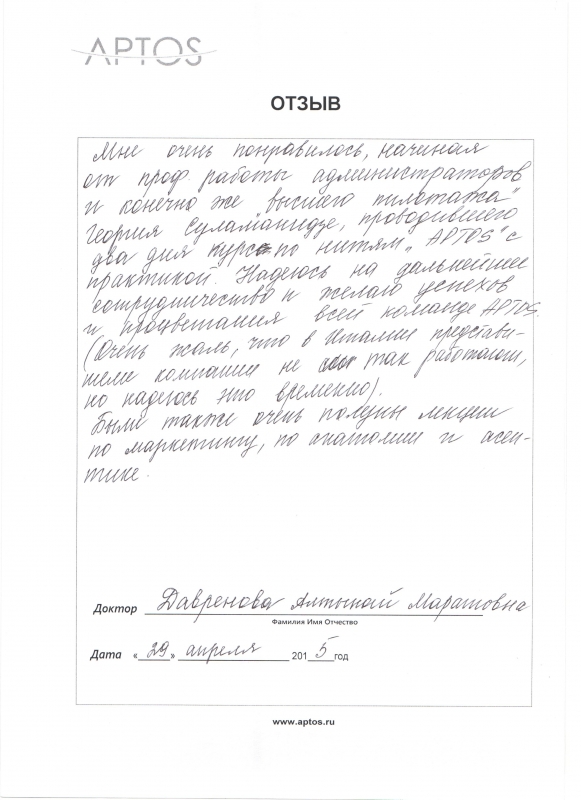 APTOS
ОТЗЫВ
Мне очень понравилось, начиная
от проф. работы администраторов
и конечно же высшего пилотажа"
Георгия Суламанидзе, проводившего
два дня курс по нитям „APTOS" с
практикой. Надеюсь на дальнейшее
сотрудничество и желаю успехов
и процветания всей команде APTOS.
(Очень жаль, что в Италии представи-
тели компании не так работают,
но надеюсь это временно).
Были также очень полезны лекции
по маркетингу, по анатомии и асеп-
тике.
Доктор Давренова Алтынай Маратовна
Фамилия Имя Отчество
Дата «29» апреля 2015 год
www.aptos.ru